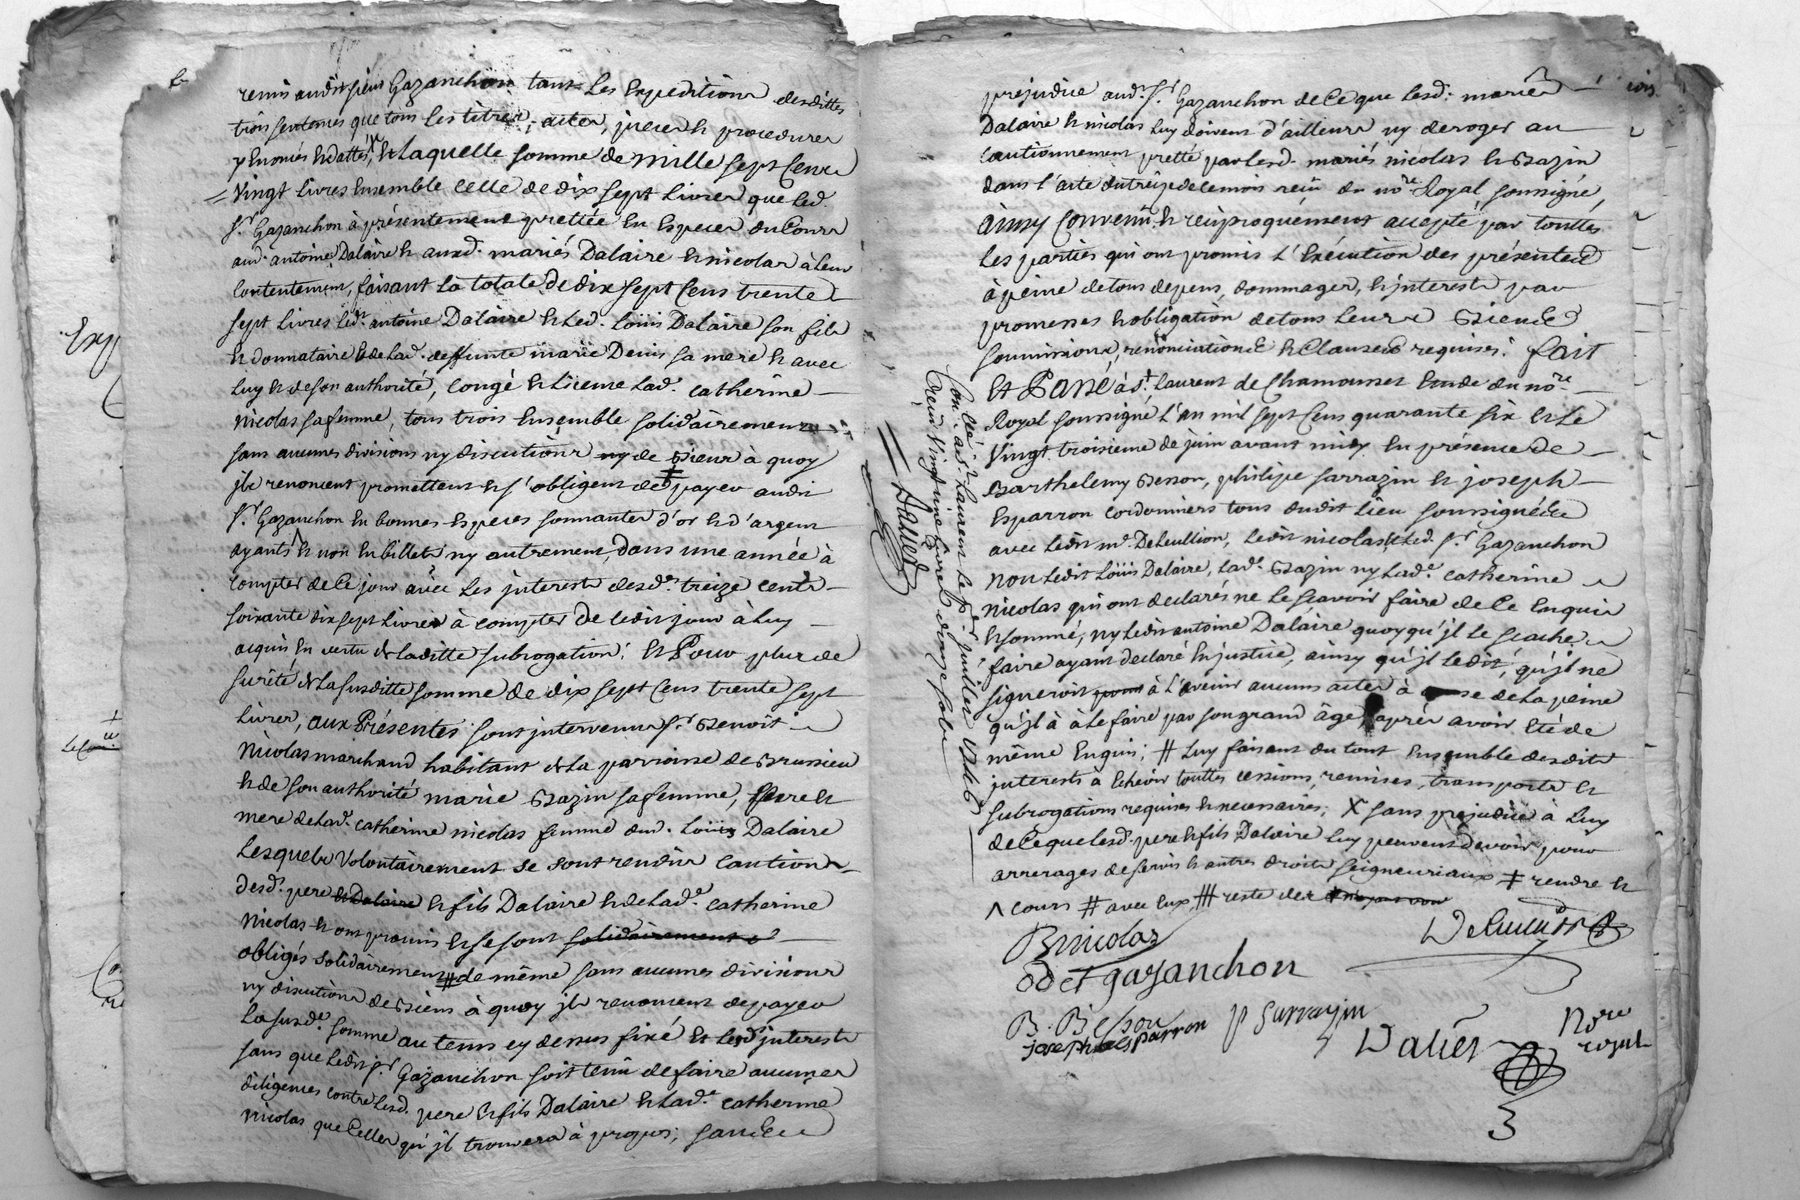 remis audit sieur Gazanchon tant les Expeditions desdittes
trois sentences que tous les titres, actes, pieces & procedures
y Enoncés & dattés, & laquelle somme de mille sept Cens
vingt livres Ensemble celle de dix sept livres que led.
Sr. Gazanchon à présentement prettée En Especes du Cours
aud. antoine Dalaire & auxd. mariés Dalaire & nicolas à leur
Contentement, faisant la totale de dix sept Cens trente
sept livres led. antoine Dalaire & led. Loüis Dalaire son fils
& donnataire & de lad. deffunte marie Denis sa mere & avec
luy & de son authorité, congé & licence lad. catherine
nicolas sa femme, tous trois Ensemble solidairement
sans aucunes divisions ny discutions ny de biens à quoy
jls renoncent promettent & s'obligent de payer audit
Sr. Gazanchon En bonnes Especes sonnantes d'or & d'argent
ayants & non En billets ny autrement, dans une année à
compter de Ce jour avec les jnterests desd. treize cents
soixante dix sept livres à compter de cedit jour à luy
acquis En vertu de laditte subrogation; Et Pour plus de
sureté de la susditte somme de dix sept Cens trente sept
livres, aux Présentes sont intervenus Sr. Benoit
Nicolas marchand habitant de la parroisse de Brussieu
& de son authorité marie Bazin sa femme, pere &
mere de lad. catherine nicolas femme dud. Loüis Dalaire
Lesquels Volontairement se sont rendus cautions
desd. pere & Dalaire & fils Dalaire & de lad. catherine
Nicolas & ont promis & se sont solidairement
obligés solidairement # de même sans aucunes divisions
ny discutions de biens à quoy jls renoncent de payer
la susd. somme au tems cy dessus fixé et lesd. jnterests
sans que ledit Sr. Gazanchon soit tenû de faire aucunes
diligences contre lesd. pere & fils Dalaire & lad. catherine
nicolas que Celles qu'jl trouvera à propos; sans
prejudice aud. Sr. Gazanchon de Ce que lesd. mariés
Dalaire & nicolas luy doivent d'ailleurs ny deroger au
Cautionnement pretté par lesd. mariés nicolas & Bazin
dans l'acte du treize de ce mois reçu du nore. Royal soussigné,
ainsy Convenû & reciproquement accepté, par touttes
les parties qui ont promis l'Exécution des présentes
à peine de tous depens, dommages, & jnterests par
promesses & obligation de tous leurs Biens
soumissions, renonciations & Clauses requises. fait
Et Passé à St. Laurent de Chamousset Etude du nore.
Royal soussigné l'an mil sept Cens quarante six & le
Vingt troisieme de juin avant midy En présence de
Barthelemy Besson, philipe sarrazin & joseph
Esparron cordonniers tous dudit lieu soussignés
avec ledit mr. Deleullion, ledit nicolas & led. Sr. Gazanchon
non ledit Loüis Dalaire, lad. Bazin ny lad. catherine
Nicolas qui ont declarés ne le scavoir faire de Ce Enquis
& sommé, ny ledit antoine Dalaire quoy qu'jl le scache
faire ayant declaré En justice, ainsy qu'jl le dit, qu'jl ne
signeroit à l'avenir aucuns actes à se de la peine
qu'jl à à le faire par son grand âge, aprés avoir Eté de
même Enquis; # luy faisant du tout Ensemble desdits
jnterests à Echeoir touttes cessions, remises, transports &
subrogations requises & necessaires; X sans prejudice à luy
de Ce que lesd. pere & fils Dalaire luy peuvent devoir pour
arrerages de servis & autres droits seigneuriaux ‡ rendre &
^ cours # avec Eux # reste des
Bnicolas
Deleullion
odet gazanchon
B. Besson
p Sarrazin
joseph esparron
Dalier
Nore
royal
Con.lé à St. Laurent le per. juillet 1746
Reçu vingt une livres douze sols
Dalier